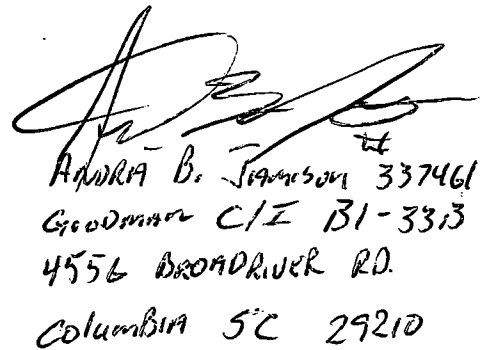 ANDRA B. JAMISON # 337461
GOODMAN C/I B1-33B
4556 BROADRIVER RD.
COLUMBIA SC 29210